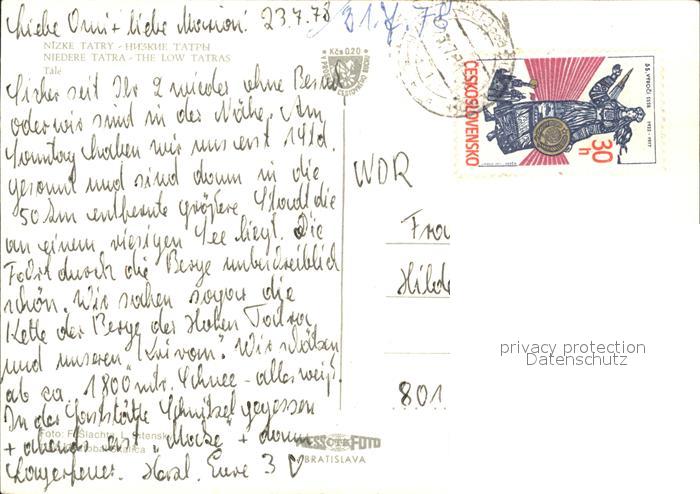 Liebe Omi + liebe Marion! 23.7.78
31.7.78
NÍZKE TATRY - НИЗКИЕ ТАТРЫ
NIEDERE TATRA - THE LOW TATRAS
Tále
Kčs 0,20
Sicher seit Ihr 2 wieder ohne Besuch
oder wir sind in der Nähe. Am
Sonntag haben wir uns erst
gesonnt und sind dann in die
50 km entfernte größere Stadt die
an einem riesigen See liegt. Die
Fahrt durch die Berge unbeschreiblich
schön. Wir sahen sogar die
Kette der Berge der Hohen Tatra
und unseren "Krivan". Wir
ab ca. 1800 mtr. Schnee - alles weiß.
In der Gaststätte Schnitzel gegessen
+ abends erst + dann
Lagerfeuer. Herzl. Eure 3
Foto: F.
PRESSFOTO
BRATISLAVA
ČESKOSLOVENSKO
30 h
55. VÝROČÍ SSSR
1922 - 1977
WDR
Frau
Hilde
801
privacy protection
Datenschutz